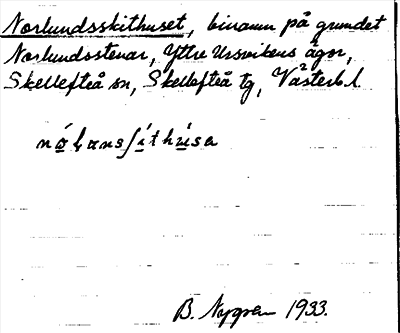 Norlundsskithuset, binamn på grundet
Norlundsstenar, Yttre Ursvikens ägor,
Skellefteå sn, Skellefteå tg, Västerb. l.
B. Nygren 1933.